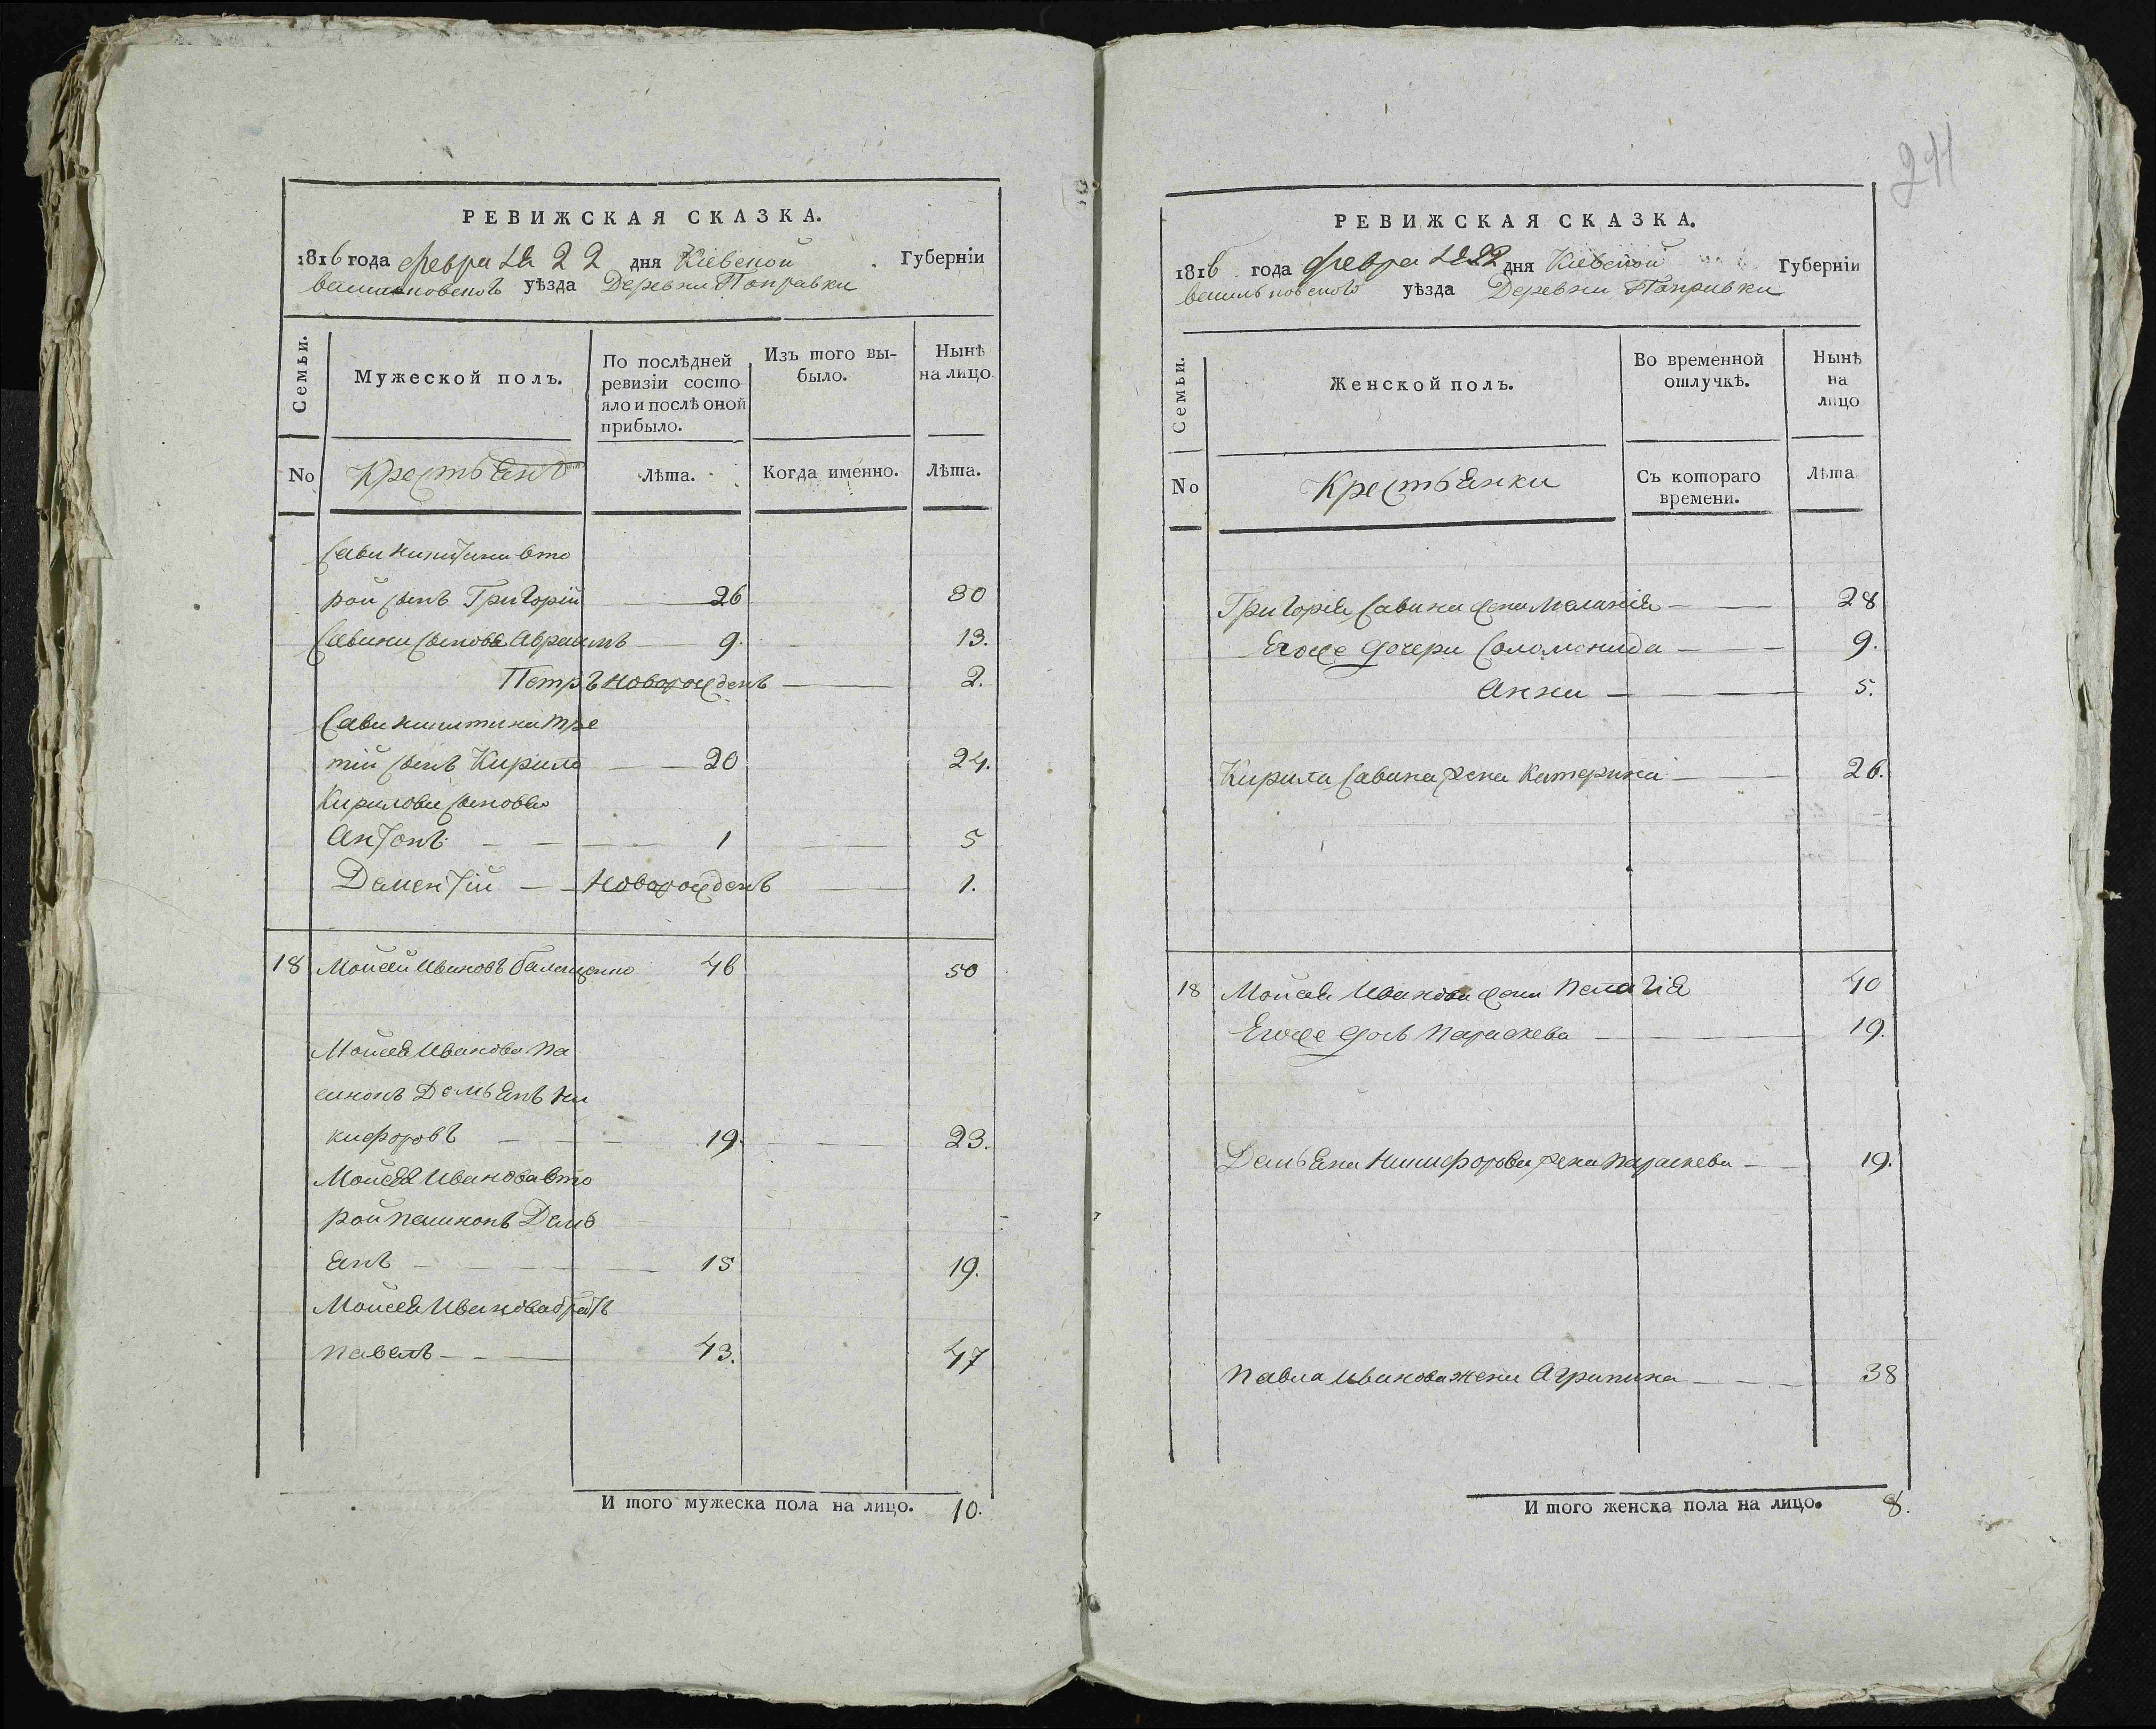 РЕВИЖСКАЯ СКАЗКА.
1816 года Февраля 22 дня Кіевской Губерніи
васильковского уѣзда Деревни Поправки
Семьи.
Мужеской полъ.
По послѣдней ревизіи состояло и послѣ оной прибыло.
Изъ того выбыло.
Нынѣ на лицо
No Крестьянъ Лѣта. Когда именно. Лѣта.
Сави Никитина вто
рой сынъ Григорій 26 30
Савини сыновья Авраамъ 9. 13.
Петръ новорожденъ 2.
Сави Никитина тре
тій сынъ Кирило 20 24.
Кириловы сыновья
Антонъ 1 5
Дементій новорожденъ 1.
18 Моисей Ивановъ 46 50
Моисея Иванова па
синокъ Демьянъ Ни
кифоровъ 19. 23.
Моисея Иванова вто
рой пасинокъ Демь
янъ 15 19.
Моисея Иванова братъ
Павелъ 43. 47
И того мужеска пола на лицо. 10.
241
РЕВИЖСКАЯ СКАЗКА.
1816 года Февраля 22 дня Кіевской Губерніи
васильковского уѣзда Деревни Поправки
Семьи.
Женской полъ.
Во временной отлучкѣ.
Нынѣ на лицо
No Крестьянки Съ котораго времени. Лѣта
Григорія Савина жена Меланія 28
Егоже дочери Соломонида 9.
Анна 5.
Кирила Савина жена Катерина 26.
18 Моисея Иванова жена Пелагія 40
Егоже дочь Параскева 19.
Демьяна Никифорова жена Параскева 19.
Павла Иванова жена Агрипина 38
И того женска пола на лицо. 8.